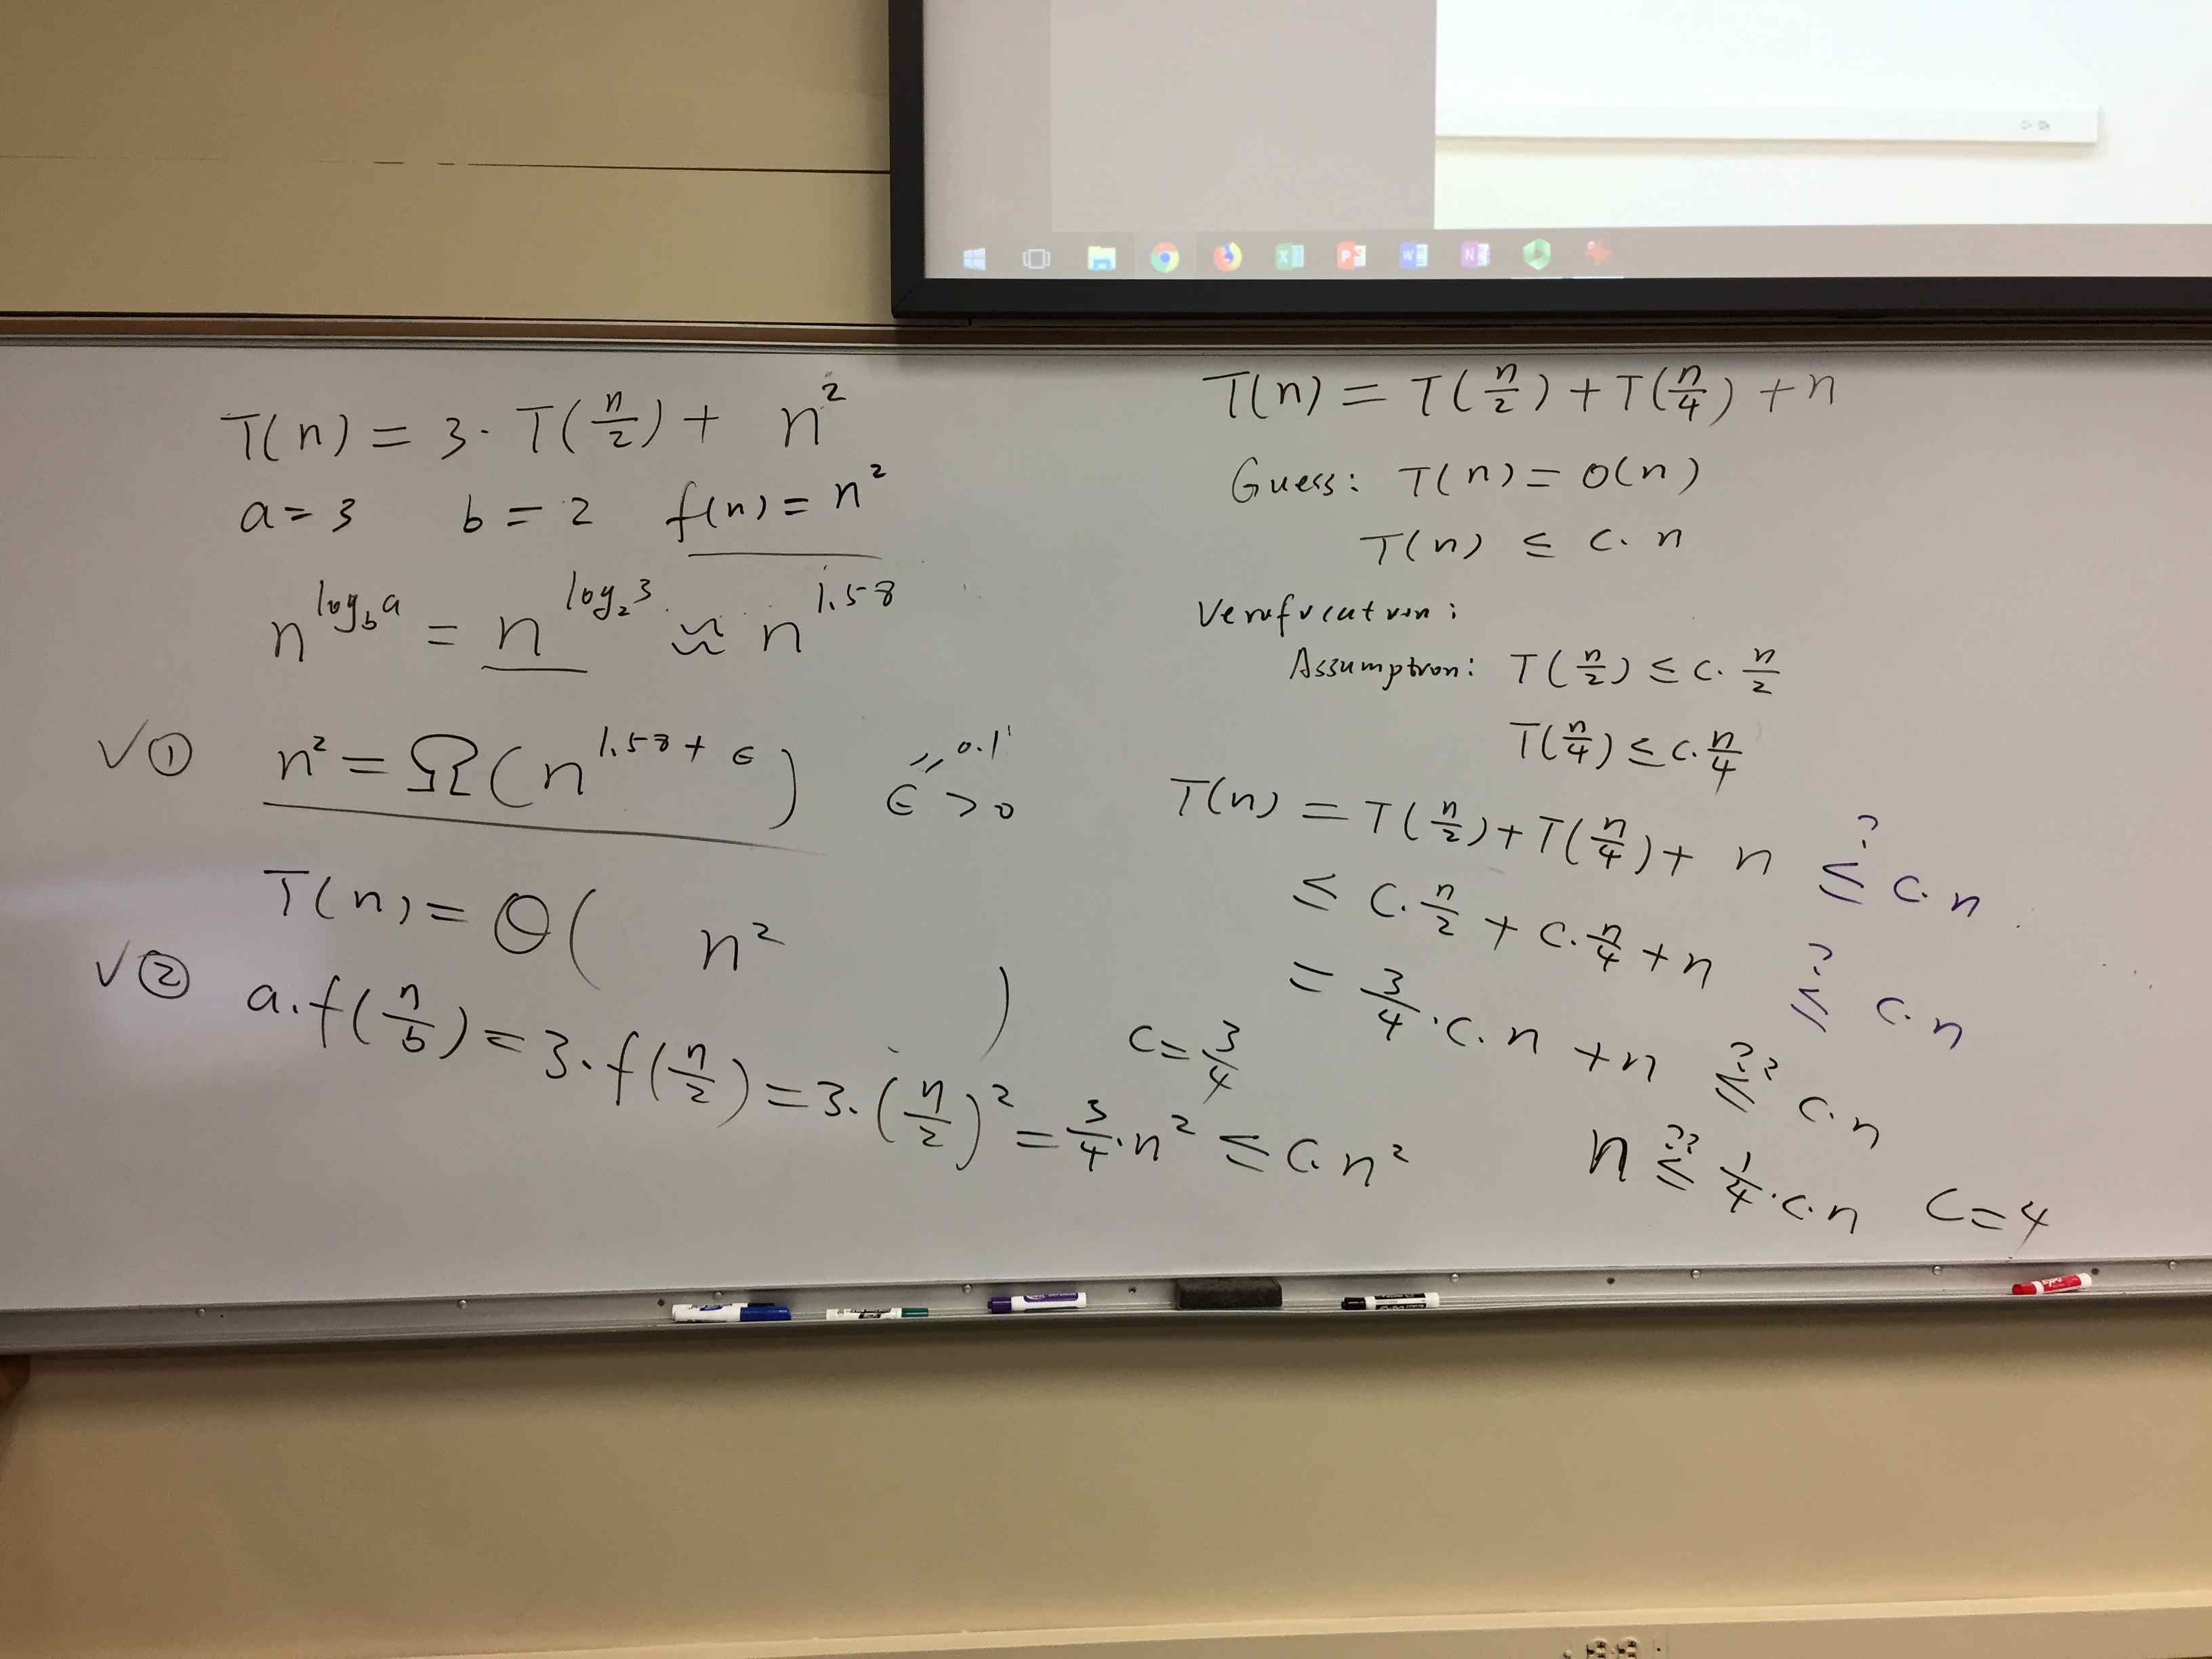 T(n) = 3 · T(n/2) + n²
a = 3 b = 2 f(n) = n²
n^(log_b a) = n^(log_2 3) ≈ n^1.58
✓① n² = Ω(n^(1.58 + ϵ)) ϵ > 0
" 0.1
T(n) = Θ( n² )
✓② a.f(n/b) = 3·f(n/2) = 3·(n/2)² = 3/4·n² ≤ c.n²
c = 3/4
T(n) = T(n/2) + T(n/4) + n
Guess: T(n) = O(n)
T(n) ≤ c. n
Verification:
Assumption: T(n/2) ≤ c. n/2
T(n/4) ≤ c. n/4
T(n) = T(n/2) + T(n/4) + n ≤? c. n
≤ c. n/2 + c. n/4 + n ≤? c. n
= 3/4 · c. n + n ≤?? c. n
n ≤?? 1/4 · c. n c = 4